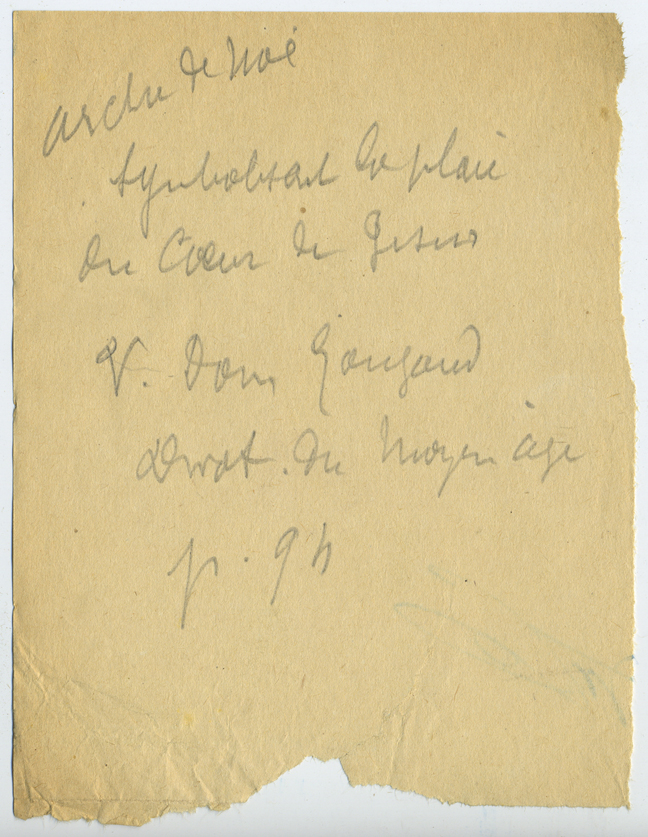 arche de Noé
symbolisant la plaie
du Cœur de Jesus
V. Dom Gougaud
Devot. du Moyen âge
p. 94